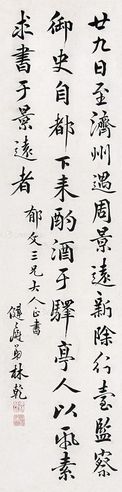 廿九日至濟州過周景遠新除行臺監察
御史自都下来酌酒于驛亭人以飛素
求書于景遠者
郁文三兄大人正書
健庵弟林乾